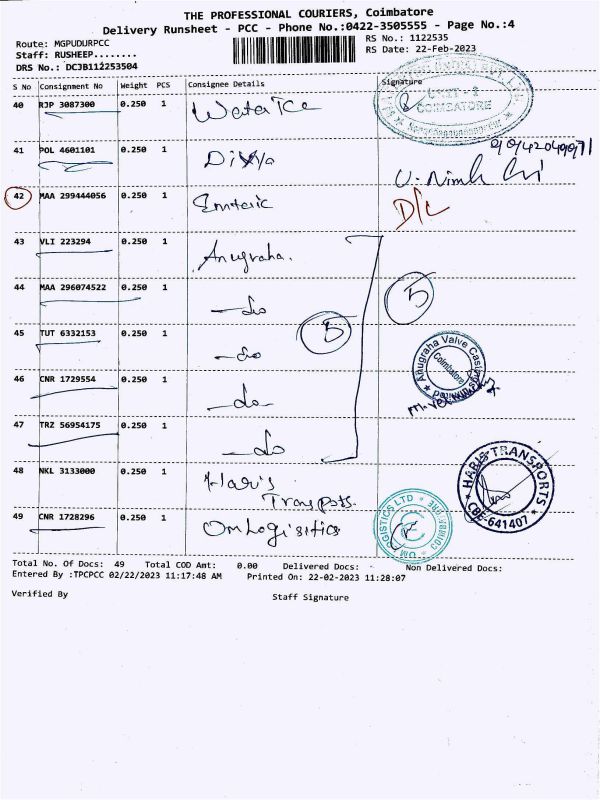 THE PROFESSIONAL COURIERS, Coimbatore
Delivery Runsheet - PCC - Phone No.:0422-3505555 - Page No.:4
Route: MGPUDURPCC
RS No.: 1122535
Staff: RUSHEEP........
RS Date: 22-Feb-2023
DRS No.: DCJB112253504
S No Consignment No Weight PCS Consignee Details Signature
40 RJP 3087300 0.250 1 Waterice
UNIT - 2
COIMBATORE
41 POL 4601101 0.250 1 Divya
42 MAA 299444056 0.250 1 D/L
43 VLI 223294 0.250 1 Anugraha.
44 MAA 296074522 0.250 1 -do
5
5
45 TUT 6332153 0.250 1 -do
Anugraha Valve Castings
Coimbatore
46 CNR 1729554 0.250 1 -do-
47 TRZ 56954175 0.250 1 -do
48 NKL 3133000 0.250 1 Hari's
Transpots.
HARIS TRANSPORTS
CBE-641407
49 CNR 1728296 0.250 1 Om Logisitics
OM LOGISTICS LTD
Total No. Of Docs: 49 Total COD Amt: 0.00 Delivered Docs: Non Delivered Docs:
Entered By :TPCPCC 02/22/2023 11:17:48 AM Printed On: 22-02-2023 11:28:07
Verified By
Staff Signature